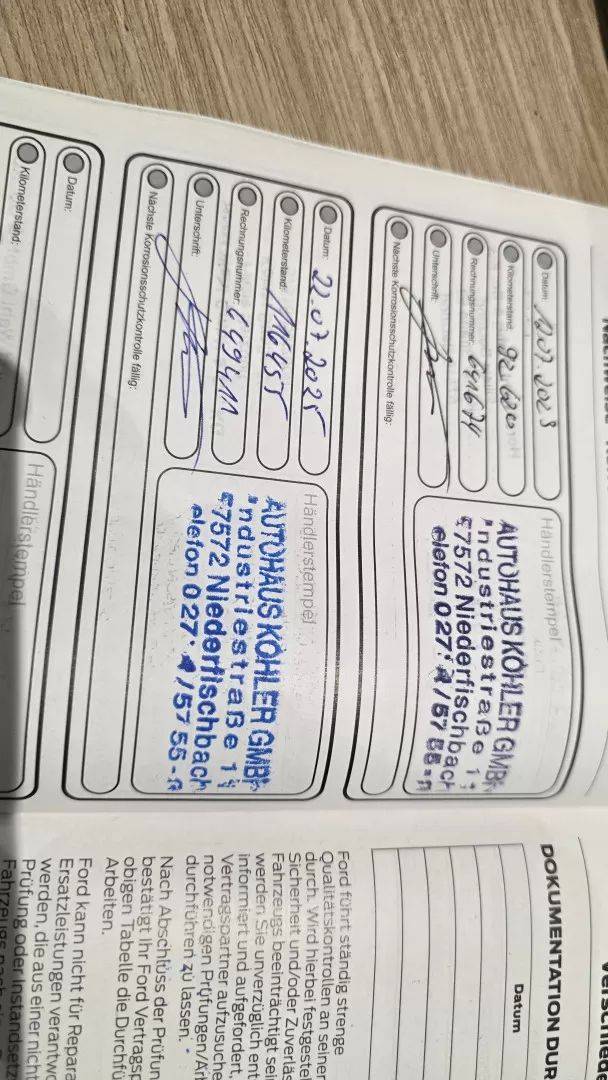 Datum: 12.07.2023
Kilometerstand: 92 620
Rechnungsnummer: 641674
Unterschrift:
Nächste Korrosionsschutzkontrolle fällig:
Händlerstempel
AUTOHAUS KÖHLER GMBH
Industriestraße 1
57572 Niederfischbach
elefon 0 27
Datum: 22.07.2025
Kilometerstand: 116455
Rechnungsnummer: 649411
Unterschrift:
Nächste Korrosionsschutzkontrolle fällig:
Händlerstempel
AUTOHAUS KÖHLER GMBH
Industriestraße 1
57572 Niederfischbach
elefon 0 27
Datum:
Kilometerstand:
Händlerstempel
DOKUMENTATION DUR
Datum
Ford führt ständig strenge
Qualitätskontrollen an seinen
durch. Wird hierbei festgestel
Sicherheit und/oder Zuverläs
Fahrzeugs beeinträchtigt sei
werden Sie unverzüglich ent
informiert und aufgefordert,
Vertragspartner aufzusuche
notwendigen Prüfungen/Ar
durchführen zu lassen.
Nach Abschluss der Prüfun
bestätigt Ihr Ford Vertragsp
obigen Tabelle die Durchfü
Arbeiten.
Ford kann nicht für Repara
Ersatzleistungen verantwo
werden, die aus einer nicht
Prüfung oder Instandsetz